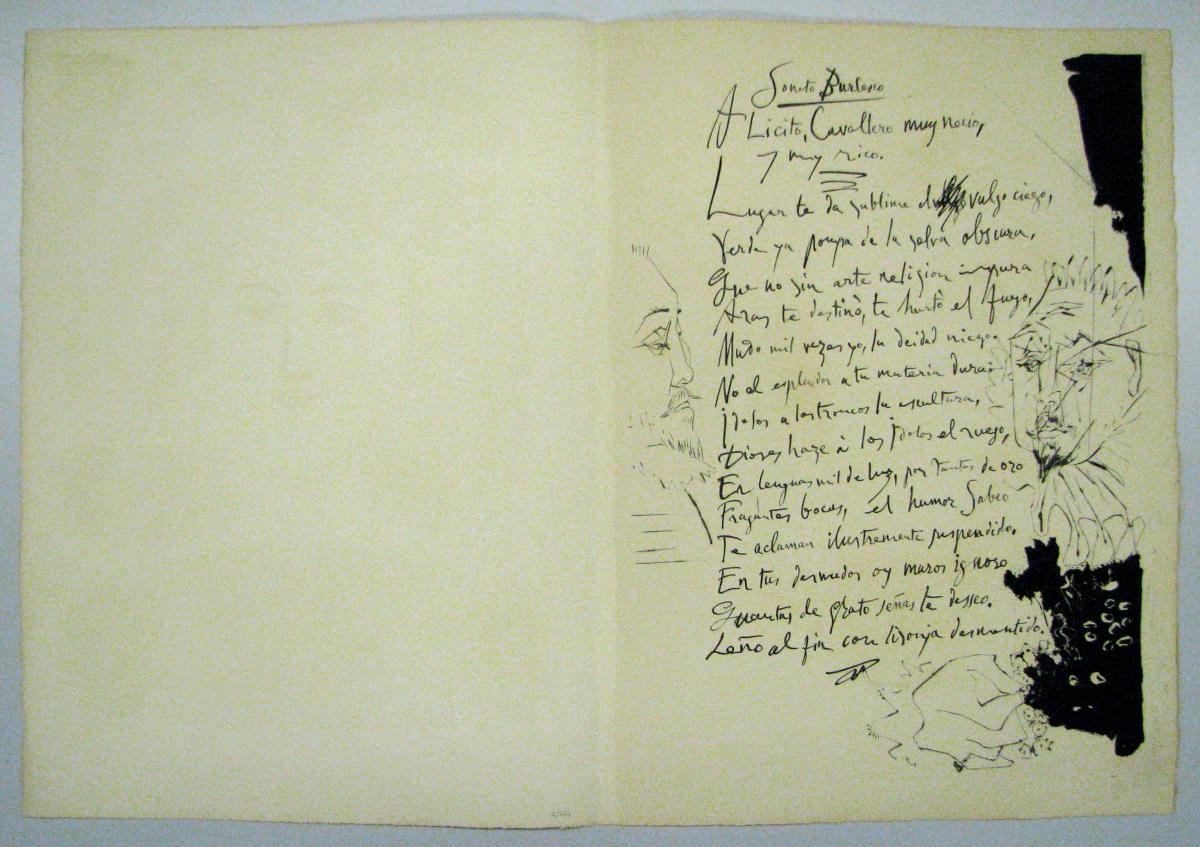 Soneto Burlesco
A Licito, Cavallero muy necio,
y muy rico.
Lugar te da sublime el vulgo ciego,
Verde ya pompa de la selva obscura,
Que no sin arte religion impura
Aras te destinò, te hurtò el fuego,
Mudo mil vezes yo, la deidad niego.
No el esplendor a tu materia dura:
jdolos a los troncos la escultura,
Dioses haze à los jdolos el ruego,
En lenguas mil de luz, por tantas de oro
Fragantes bocas, el humor Sabeo
Te aclaman ilustremente suspendido.
En tus desnudos oy muros ignoro
Quantas de grato señas te desseo.
Leño al fin con lisonja desmentido.